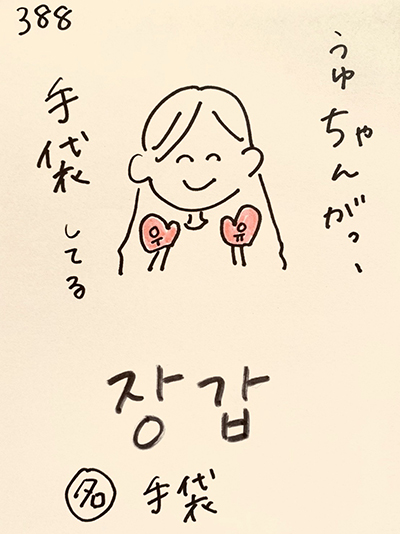 388
うゆちゃんがっ、
手袋してる
우 유
장갑
名 手袋